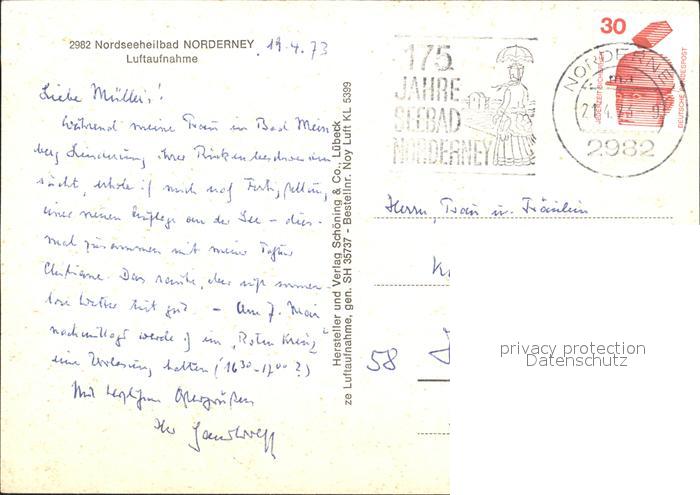 2982 Nordseeheilbad NORDERNEY
Luftaufnahme
19.4.73
Liebe Müllers!
Während meine Frau in Bad Mein-
berg Linderung ihrer Rückenbeschwerden
sucht, erhole ich mich nach Fertigstellung
eines neuen an der See – dies-
mal zusammen mit meiner Tochter
Christiane. Das rauhe, aber
lose Wetter tut gut. – Am 7. Mai
nachmittags werde ich im "Roten Kreuz"
eine Vorlesung halten (16³⁰–17⁰⁰?)
Mit herzlichen Ostergrüßen
Ihr
Hersteller und Verlag Schöning & Co., Lübeck
ze Luftaufnahme, gen. SH 35737 - Bestellnr. Noy Luft KL 5399
175
JAHRE
SEEBAD
NORDERNEY
NORDERNEY
2982
30
DEUTSCHE BUNDESPOST
Herrn, Frau u. Fräulein
58
privacy protection
Datenschutz